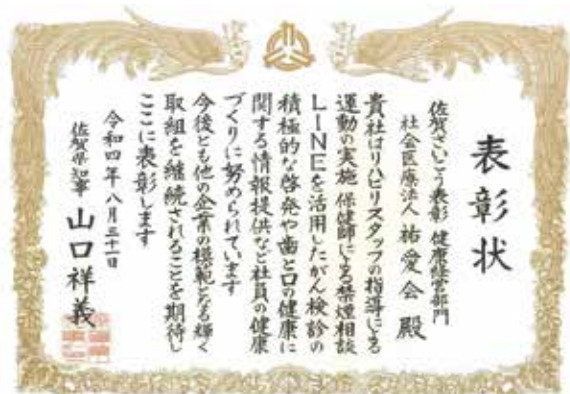 表彰状
佐賀さいこう表彰 健康経営部門
社会医療法人 祐愛会 殿
貴社はリハビリスタッフの指導による
運動の実施 保健師による禁煙相談
LINEを活用したがん検診の
積極的な啓発や歯と口の健康に
関する情報提供など社員の健康
づくりに努められています
今後とも他の企業の模範となる輝く
取組を継続されることを期待し
ここに表彰します
令和四年八月三十一日
佐賀県知事 山口祥義